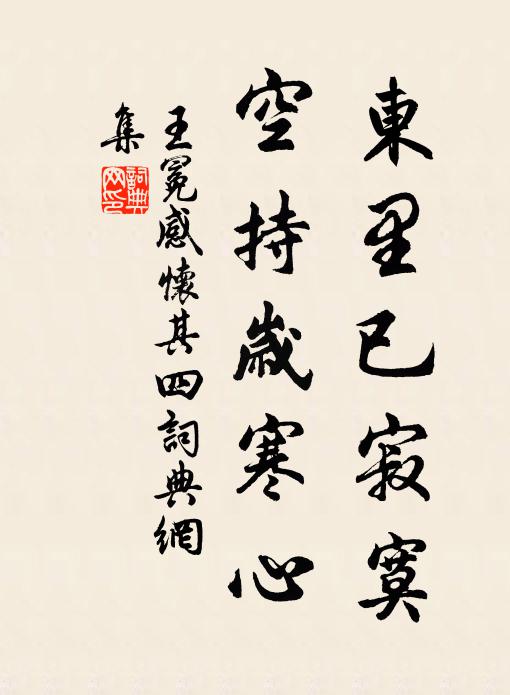 東里已寂寞
空持歲寒心
王冕感懷其四詞典網
集
詞典
网印